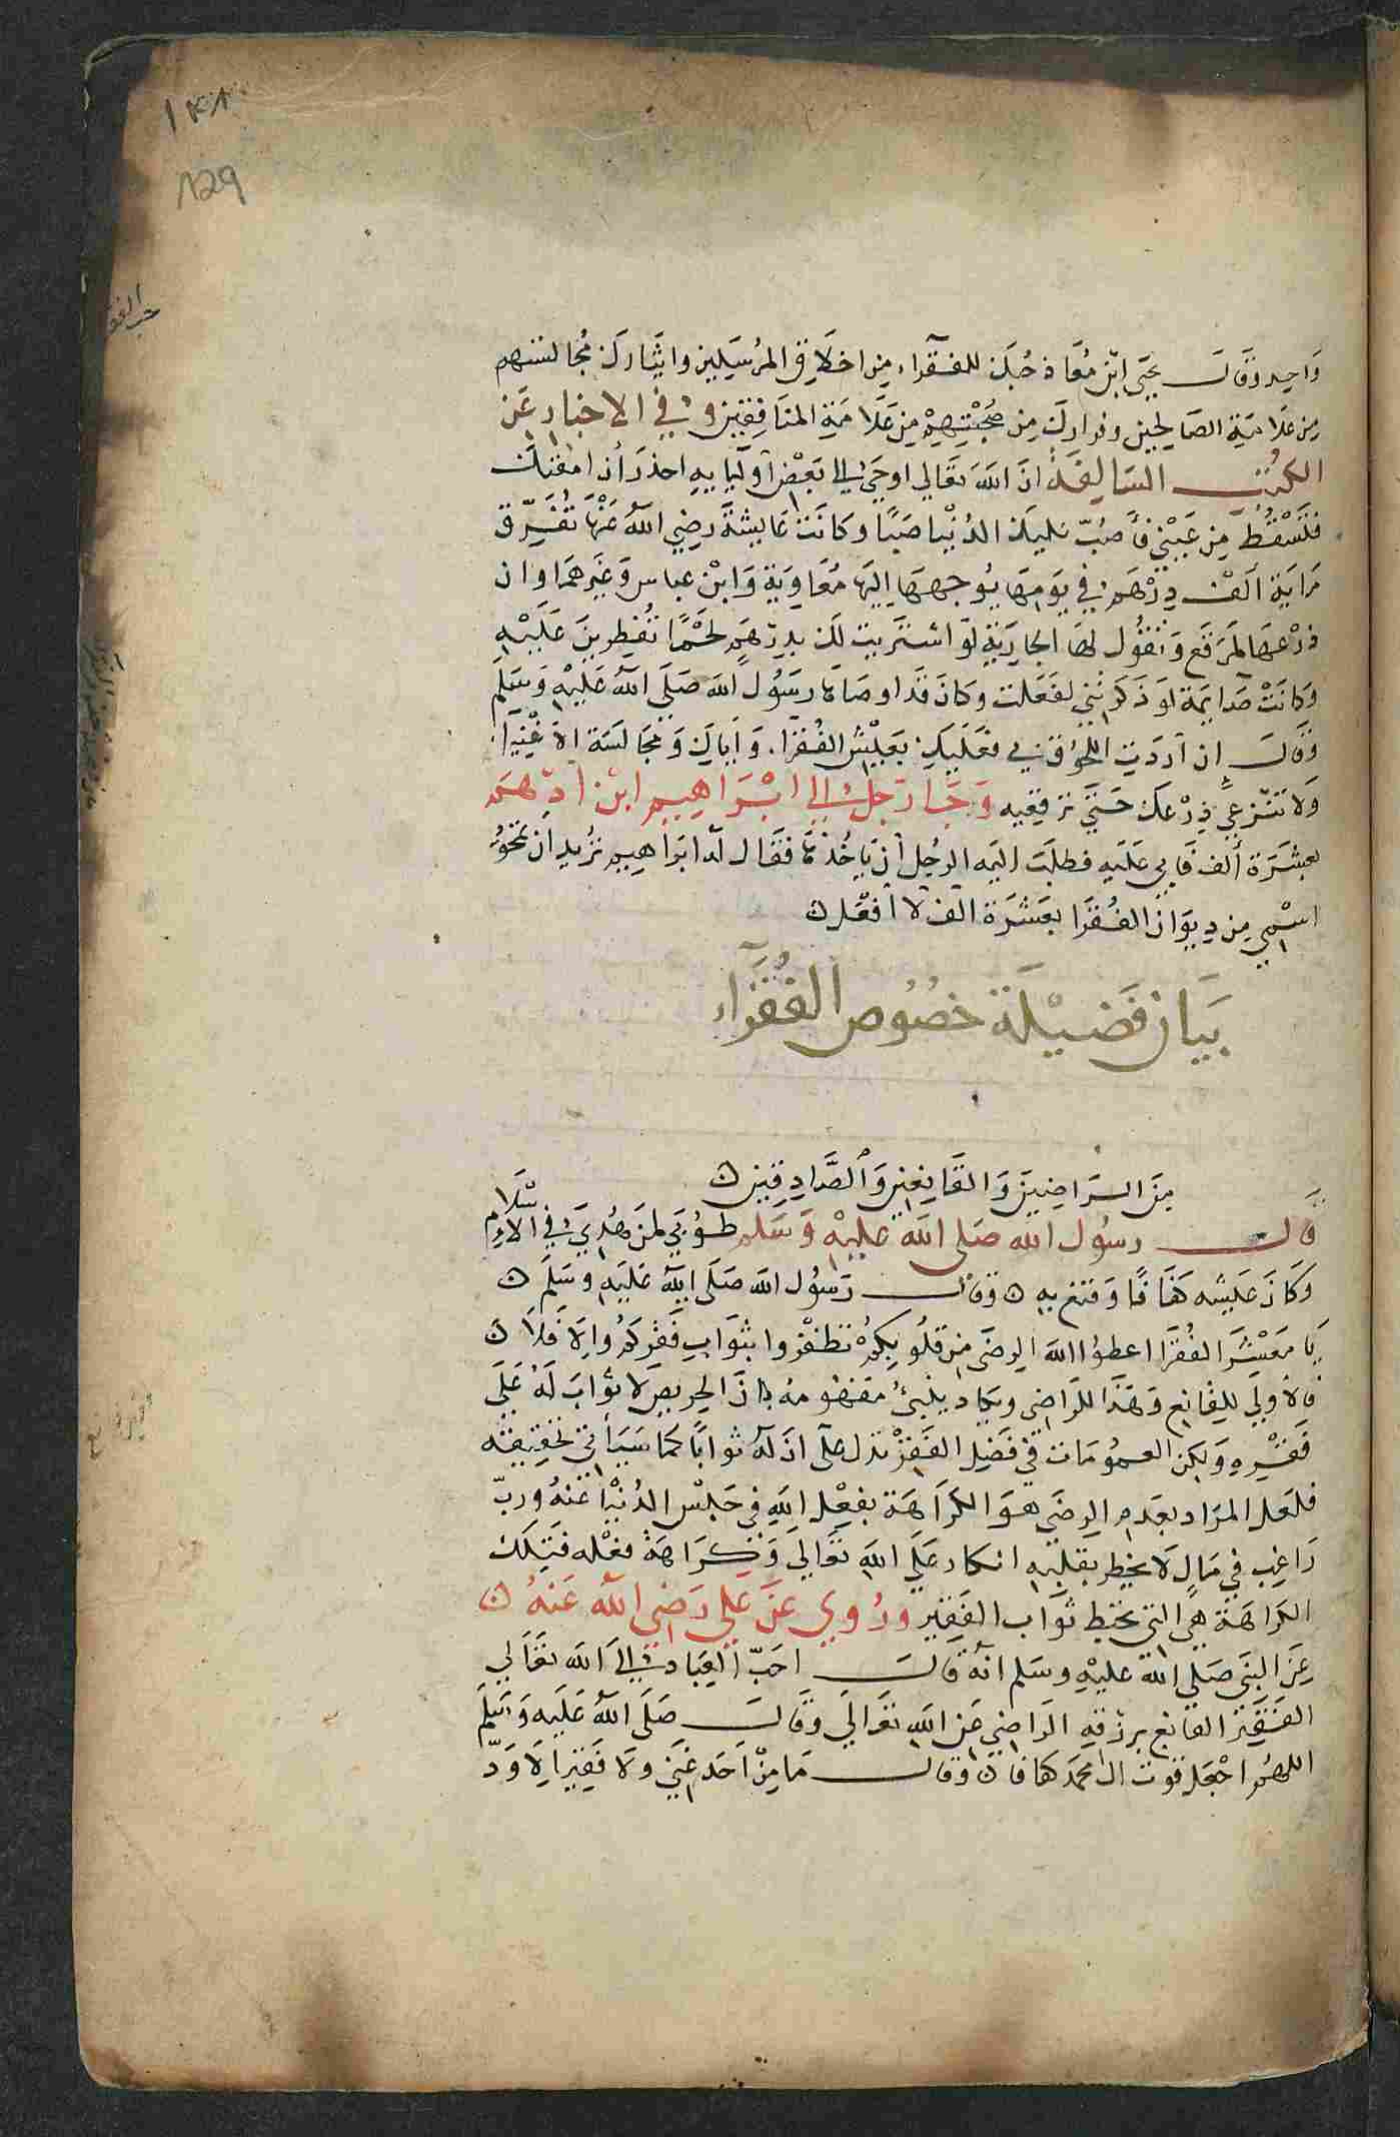 ١٣٨
129
حب الفقر
وَاحِد وَقَالَ يحيَى ابْن مُعَاذ حُبكَ للفقراء مِن اخلَاقِ المرُسَلِين وايثَارك مُجالستهم
مِن عَلَامَةِ الصَالحِين وفرارك مِن صُحْبَتِهِمْ مِن عَلَامَةِ المنَافِقِين وَفي الاخبَار عَن
الكتُب السَالِفَة انَ اللَّه تعَالى اوحَى الى بَعْض أوليَايِهِ احذر أن امقتك
فتَسْقُط مِن عَيْني فأصُبّ عليكَ الدُنْيا صَبًا وكانَت عَايشَة رضِي اللَّه عَنْهَا تُفَرِّق
مَايَة اَلْف دِرْهَم في يَومِهَا يُوجههَا اليَها مُعَاوِيَة وَابْن عباس وَغَيرهمَا وان
دِرْعهَا لمرَقع وَتَقُول لهَا الجاريَة لَو اشتريت لَك بدِرْهَم لحْمًا تُفطرينَ عَلَيْهِ
وَكانَتْ صَايمَة لَو ذَكرتني لفعَلت وكانَ قَد اوصَاهَا رسُول اللَّه صَلَى اللَّه عَلَيْهِ وَسَلم
وَقَالَ ان اَرَدتِ اللحُوق بي فعَلَيكِ بعَيْش الفُقرا وَاياكِ وَمُجَالسَة الاغْنِيا
وَلا تَنزعي دِرْعك حَتى ترقعِيه وَجَا رَجل الى ابْرَاهيم ابْن اَدْهَم
بعشَرَة أَلف فَابى عَلَيهِ فطلبَ اليَه الرجُل أن يَاخُذهَا فقَال لَه ابرَاهِيم تُريد ان تمحُو
اسْمي مِن دِيوَان الفُقَرَا بعَشَرَة الف لا افْعَل
بَيَان فَضيْلَة خصُوص الفُقَرَآءِ
مِنَ الراضِينَ وَالقَانِعِين وَالصَّادِقِين
قَالَ رسُول اللَّه صَلى اللَّه عَلَيْهِ وَسَلم طُوبى لمن هُدِيَ في الاسْلَام
وَكَانَ عَيشه كَفَافًا وَقنع بِهِ وَقَالَ رَسُول اللَّه صَلَى اللَّه عَلَيهِ وسَلَم
يَا مَعْشَرَ الفُقَرَا اعطوُا اللَّه الرِضَى مِن قلُوبِكُمْ تظفرُوا بثوَابِ فَقْركم وَالا فَلا
فَالأولى للقَانِع وَهَذَا للرَاضِي ويكاد ينبئ مفهُومه بان الحريص لا ثوَابَ لَه عَلَى
فَقْرِهِ وَلكِن العمُومَات في فَضْل الفَقْر تدل على ان لَه ثوابًا كمَا سَيأتي تحقِيقه
فلعَل المرَاد بعَدَم الرضَى هوَ الكرَاهَة بفِعْل اللَّهِ في حَبْس الدُنْيَا عَنهُ وربّ
رَاغِب في مَالٍ لَا يخطر بقَلْبِهِ انكار عَلى اللَّه تعَالى وَلا كرَاهَة فعْله فتِلك
الكرَاهَة هِيَ التي تحبط ثوَاب الفَقِير وَرُوي عَن علِي رَضيَ اللَّه عَنهُ
عَن النَبي صَلى اللَّه عليْهِ وسَلم انَّه قَالَ احَبّ العِبَاد الى اللَّه تعَالى
الفَقِير القَانِع برزقهِ الرَاضِي عَن اللَّهِ تعَالى وَقَالَ صَلَى اللَّه عَلَيهِ وَسَلم
اللهُم اجْعَل قوت ال محمَد كفافا وقَالَ مَا مِنْ اَحَد غَني وَلا فَقِير الاَ وَدّ